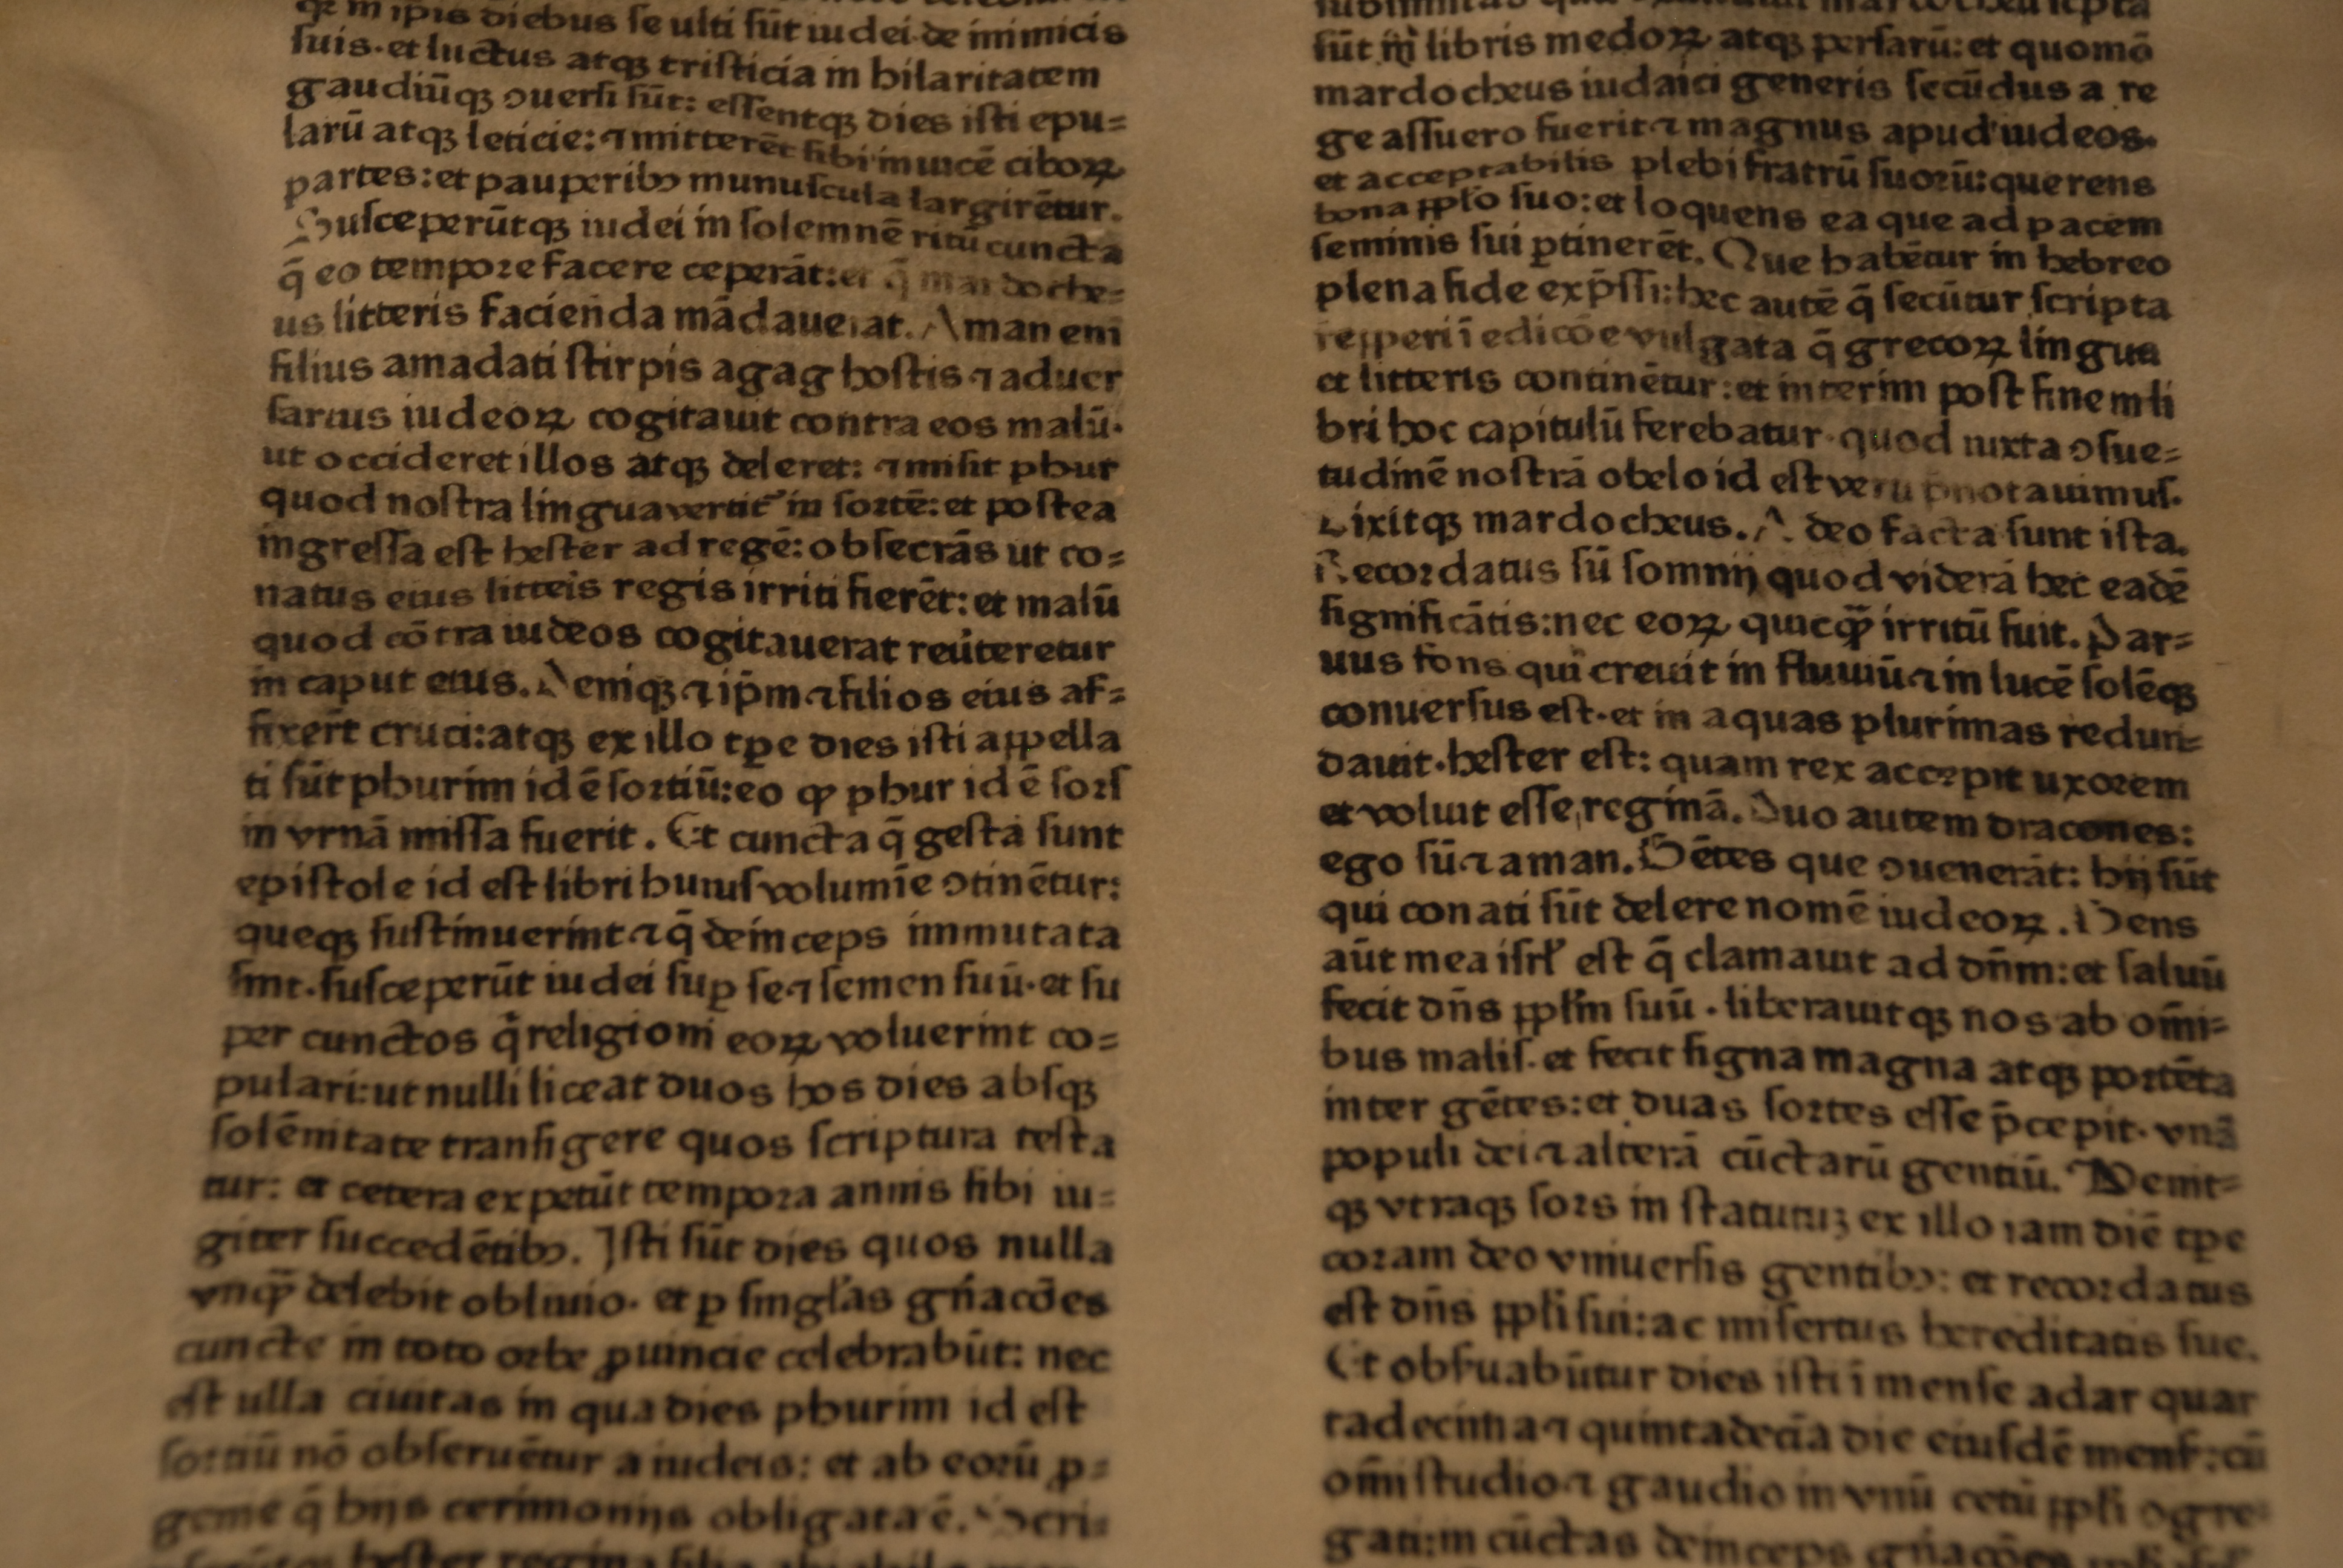 qꝛ in ip̄is diebus ſe ulti ſūt iudei de inimicis
ſuis·et luctus atqꝫ triſticia in hilaritatem
gaudiūqꝫ ↄuerſi ſūt: eſſentqꝫ dies iſti epu=
larū atqꝫ leticie: ⁊ mitterēt ſibi inuicē ciboꝝ
partes: et pauperibꝰ munuſcula largirētur.
Suſceperūtqꝫ iudei in ſolemnē ritū cuncta
q̄ eo tempore facere ceperāt: et q̄ mardoche=
us litteris facienda mādauerat. Aman eni
filius amadati ſtirpis agag hoſtis ⁊ aduer
ſarius iudeoꝝ cogitauit contra eos malū·
ut occideret illos atqꝫ deleret: ⁊ miſit phur
quod noſtra lingua vertit᷑ in ſortē: et poſtea
ingreſſa eſt heſter ad regē: obſecrās ut co=
natus eius litteis regis irriti fierēt: et malū
quod cōtra iudeos cogitauerat reūteretur
in caput eius. Deniqꝫ ⁊ ip̄m ⁊ filios eius af=
fixer̄t cruci: atqꝫ ex illo tꝑe dies iſti appella
ti ſūt phurim id ē ſortiū: eo ꝙ phur id ē ſorſ
in vrnā miſſa fuerit. Et cuncta q̄ geſta ſunt
epiſtole id eſt libri huiuſ volumīe ↄtinētur:
queqꝫ ſuſtinuerint ⁊ q̄ deinceps immutata
ſint·ſuſceperūt iudei ſuꝑ ſe ⁊ ſemen ſuū·et ſu
per cunctos q̄ religioni eoꝝ voluerint co=
pulari: ut nulli liceat duos hos dies abſqꝫ
ſolēnitate tranſigere quos ſcriptura teſta
tur: et cetera expetūt tempora annis ſibi iu=
giter ſuccedētibꝰ. Iſti ſūt dies quos nulla
vnqꝙ̄ delebit obliuio· et ꝑ ſingl̓as gn̄acōes
cuncte in toto orbe ꝓuincie celebrabūt: nec
eſt ulla ciuitas in qua dies phurim id eſt
ſortiū nō obſeruētur a iudeis: et ab eorū ꝓ=
genie q̄ hijs cerimonijs obligata ē. Scri=
heſter regina filia
ſūt in libris medoꝝ atqꝫ perſarū: et quomō
mardocheus iudaici generis ſecūdus a re
ge aſſuero fuerit ⁊ magnus apud iudeos·
et acceptabilis plebi fratrū ſuorū: querens
bona pp̄lo ſuo: et loquens ea que ad pacem
ſeminis ſui ꝑtinerēt. Que habētur in hebreo
plena fide exp̄ſſi: hec autē q̄ ſecūtur ſcripta
repperi ī edicōe vulgata q̄ grecoꝝ lingua
et litteris continētur: et interim poſt finem li
bri hoc capitulū ferebatur·quod iuxta ↄſue=
tudinē noſtrā obelo id eſt veru p̄notauimuſ.
Dixitqꝫ mardocheus. A deo facta ſunt iſta.
Recordatus ſū ſomnij quod viderā hec eadē
ſignificātis: nec eoꝝ quicꝙ̄ irritū fuit. Par=
uus fons qui creuit in fluuiū ⁊ in lucē ſolēqꝫ
conuerſus eſt·et in aquas plurimas redun=
dauit·heſter eſt: quam rex accepit uxorem
et voluit eſſe reginā. Duo autem dracones:
ego ſū ⁊ aman. Gētes que ↄuenerāt: hij ſūt
qui conati ſūt delere nomē iudeoꝝ. Gens
aūt mea iſrl̓ eſt q̄ clamauit ad dn̄m: et ſaluū
fecit dn̄s pp̄lm ſuū·liberauitqꝫ nos ab om̄i=
bus maliſ·et fecit ſigna magna atqꝫ portēta
inter gētes: et duas ſortes eſſe p̄cepit·vnā
populi dei ⁊ alterā cūctarū gentiū. Venit=
qꝫ vtraqꝫ ſors in ſtatutuꝫ ex illo iam diē tꝑe
coram deo vniuerſis gentibꝰ: et recordatus
eſt dn̄s pp̄li ſui: ac miſertus hereditatis ſue.
Et obſ̓uabūtur dies iſti ī menſe adar quar
tadecima ⁊ quintadecīa die eiuſdē menſ̓: cū
om̄i ſtudio ⁊ gaudio in vnū cetū pp̄li ↄgre=
gati: in cūctas deinceps gn̄acōes